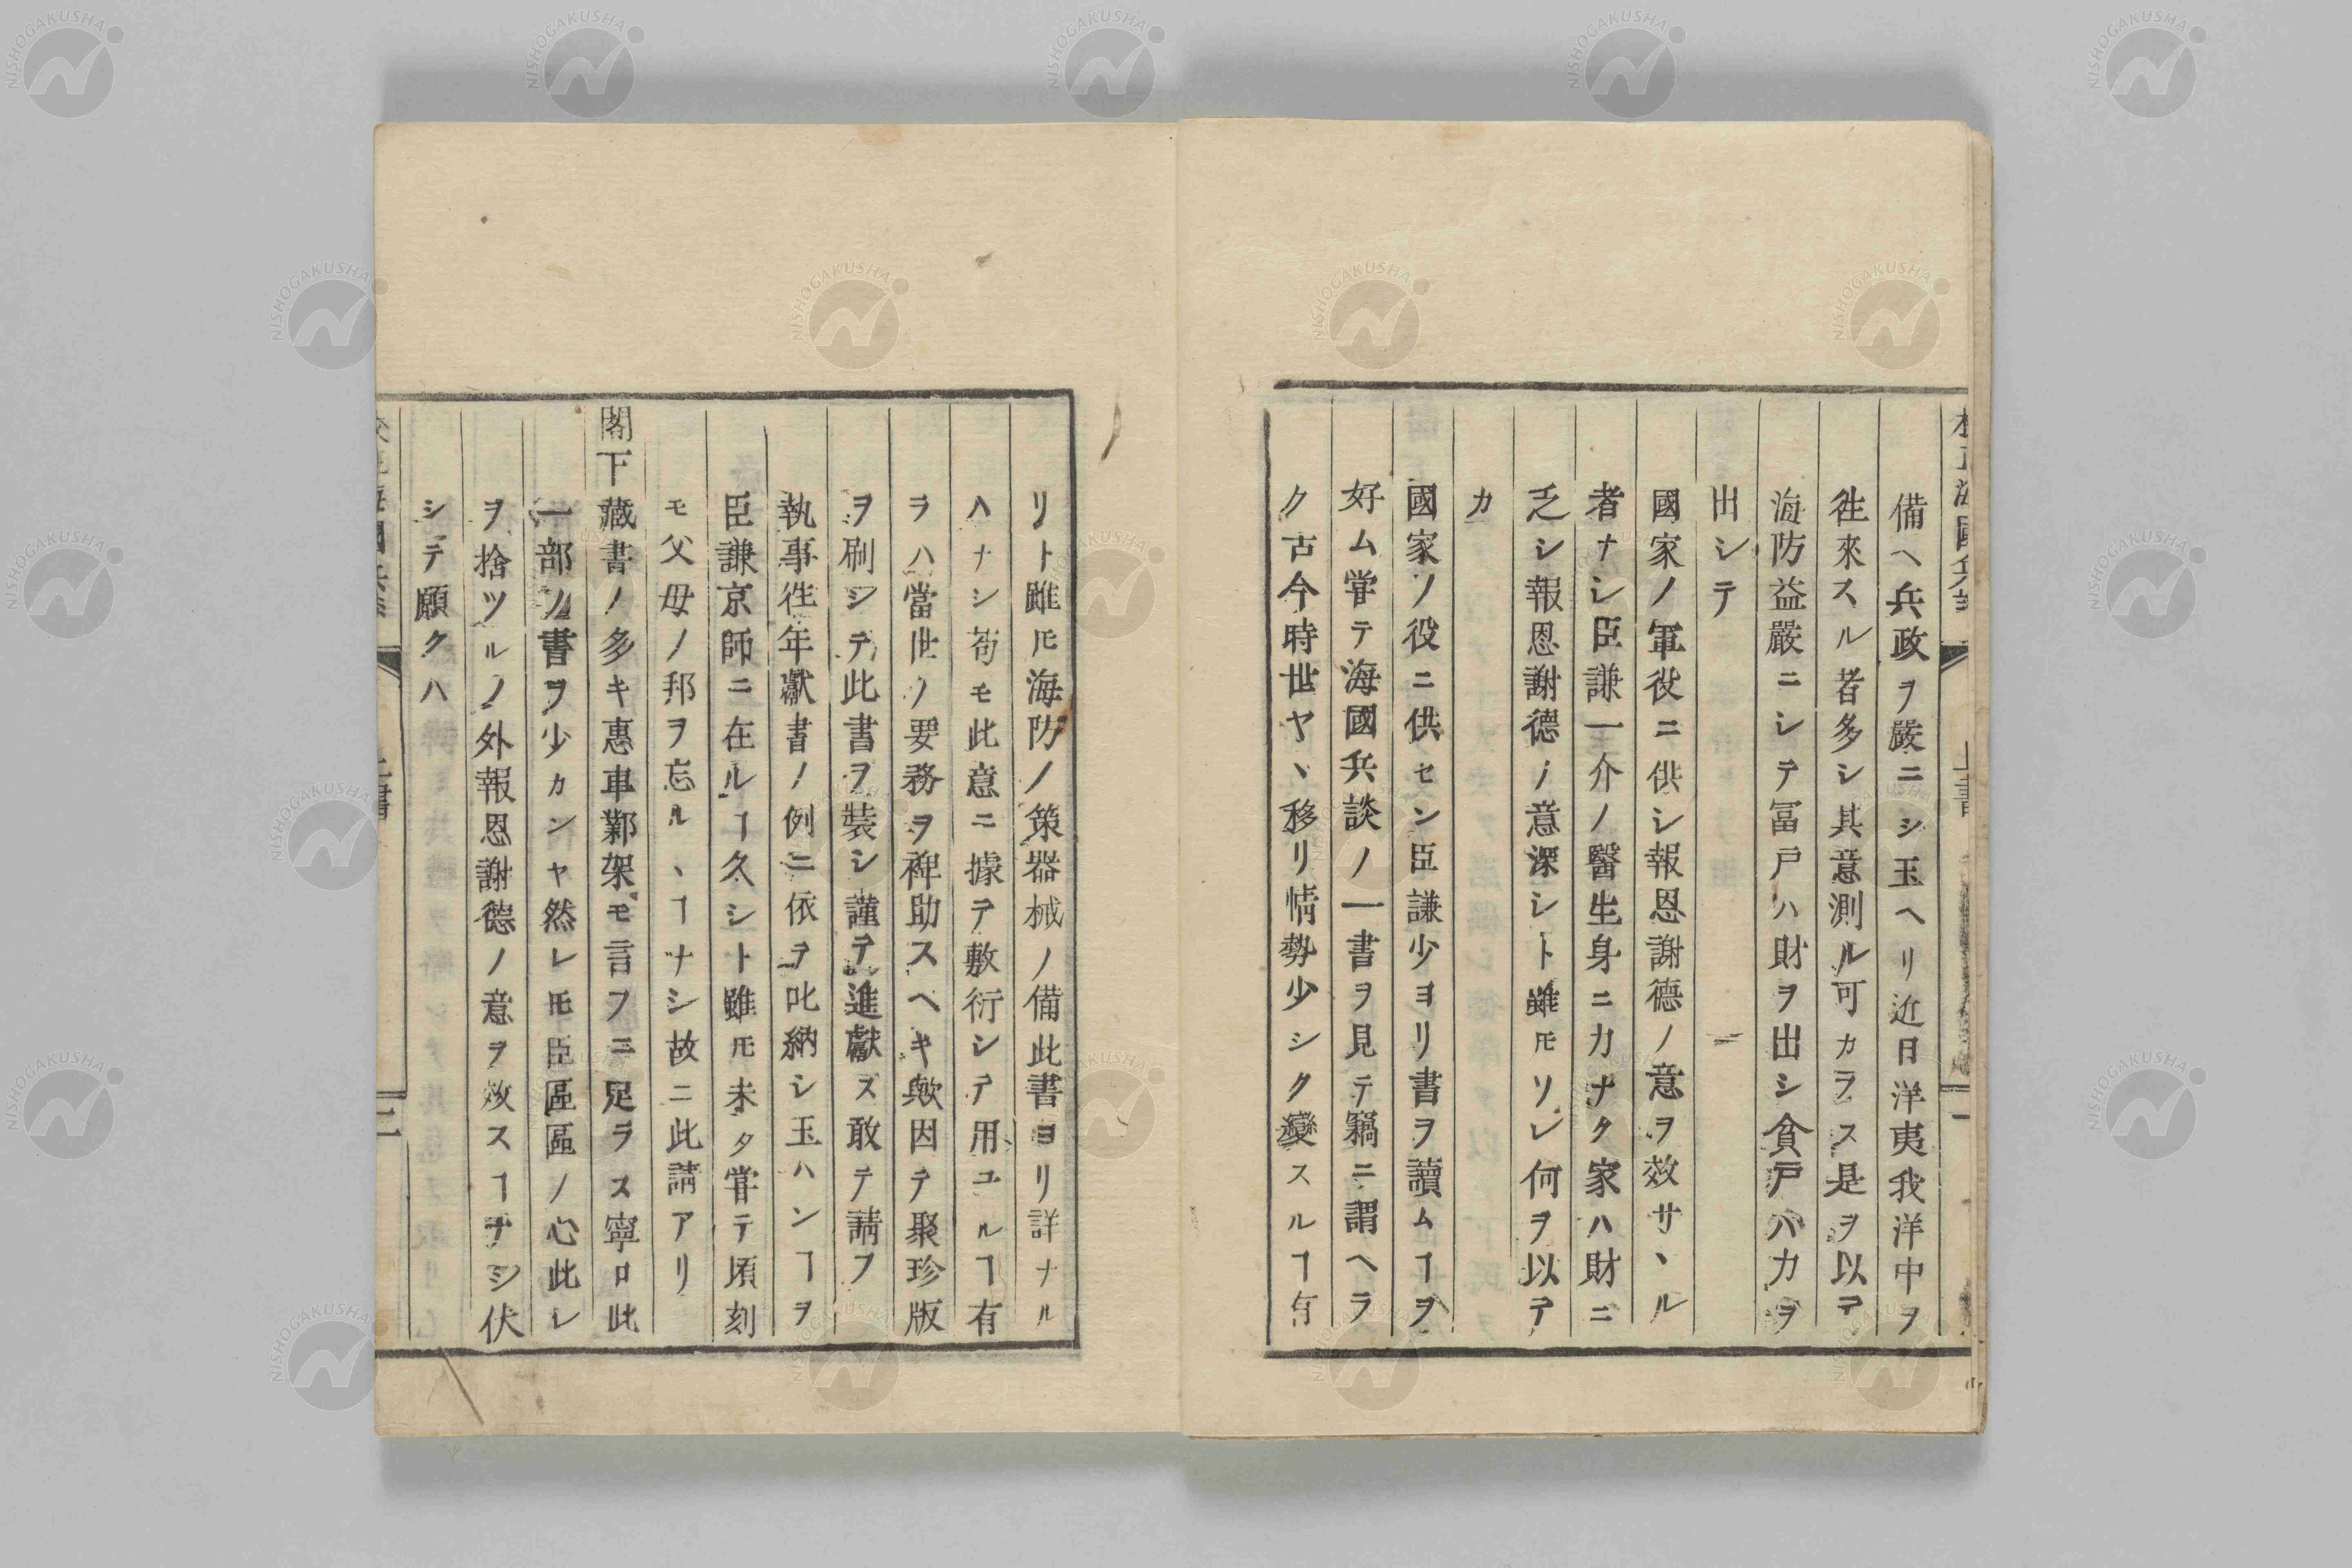 備ヘ兵政ヲ嚴ニシ玉ヘリ近日洋夷我洋中ヲ
徃來スル者多シ其意測ル可カラス是ヲ以テ
海防益嚴ニシテ冨戸ハ財ヲ出シ貪戸ハ力ヲ
出シテ
國家ノ軍役ニ供シ報恩謝德ノ意ヲ效サヽル
者ナシ臣謙一介ノ醫生身ニ力ナク家ハ財ニ
乏シ報恩謝德ノ意深シト雖𪜈ソレ何ヲ以テ
カ
國家ソ役ニ供セン臣謙少ヨリ書ヲ讀ムヿヲ
好ム甞テ海國兵談ノ一書ヲ見テ竊ニ謂ヘラ
ク古今時世ヤヽ移リ情勢少シク變スルヿ有
リト雖𪜈海防ノ策器械ノ備此書ヨリ詳ナル
ハナシ苟モ此意ニ據テ敷衍シテ用ユルヿ有
ラハ當世ノ要務ヲ裨助スヘキ歟因テ聚珍版
ヲ刷シテ此書ヲ裝シ謹テ進獻ス敢テ請フ
執事徃年獻書ノ例ニ依テ叱納シ玉ハンヿヲ
臣謙京師ニ在ルヿ久シト雖𪜈未タ甞テ頃刻
モ父母ノ邦ヲ忘ルヽヿナシ故ニ此請アリ
閣下藏書ノ多キ惠車鄴架モ言フニ足ラス寧ロ此
一部ノ書ヲ少カンヤ然レ𪜈臣區區ノ心此レ
ヲ捨ツルノ外報恩謝德ノ意ヲ效スヿナシ伏
シテ願クハ
上書
二
NISHOGAKUSHA